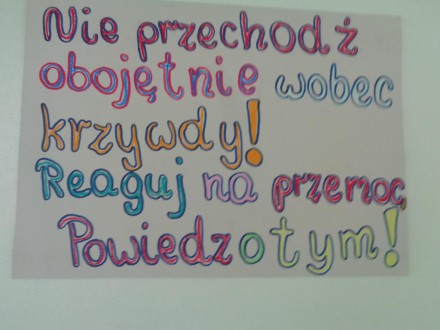 Nie przechodź
obojętnie wobec
krzywdy!
Reaguj na przemoc,
Powiedz o tym!